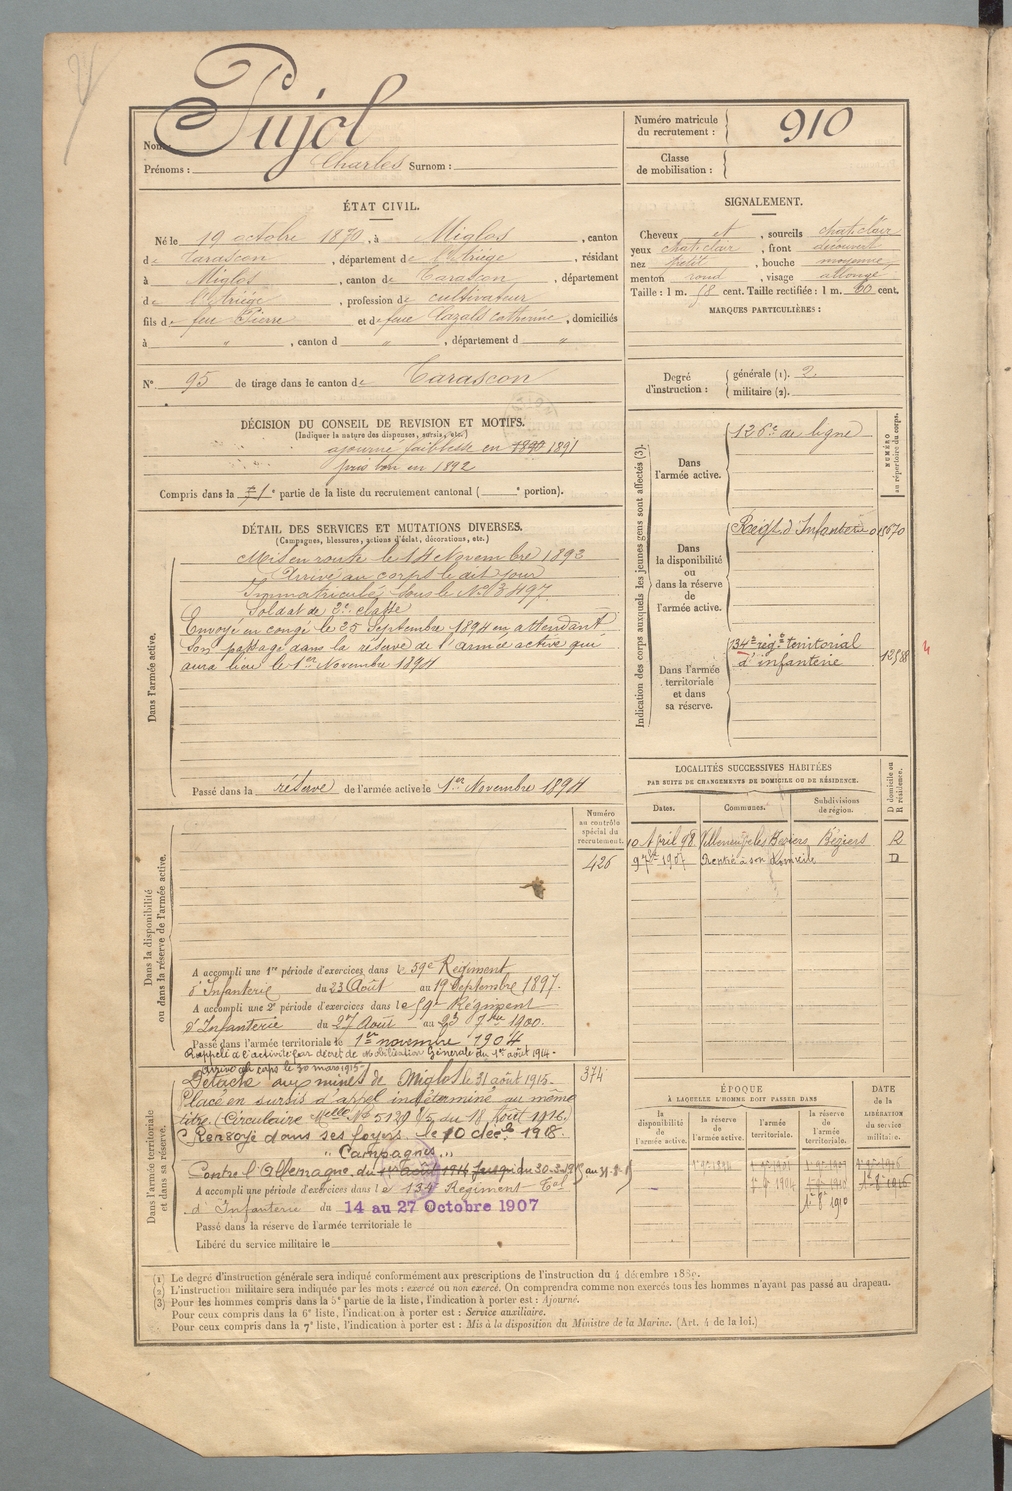 Pujol
Nom :
Prénoms : Charles Surnom :
Numéro matricule
du recrutement : 910
Classe
de mobilisation :
ÉTAT CIVIL.
Né le 19 octobre 1870, à Miglos, canton
de Tarascon, département de l'Ariège, résidant
à Miglos, canton de Tarascon, département
de l'Ariège, profession de cultivateur
fils de feu Pierre et de feue Cazals Catherine, domiciliés
à " , canton d " , département d "
N° 95 de tirage dans le canton de Tarascon
SIGNALEMENT.
Cheveux et , sourcils chat. clair
yeux chat. clair , front découvert
nez petit , bouche moyenne
menton rond , visage allongé
Taille : 1 m. 58 cent. Taille rectifiée : 1 m. 60 cent.
MARQUES PARTICULIÈRES :
Degré
d'instruction :
générale (1). 2
militaire (2).
DÉCISION DU CONSEIL DE REVISION ET MOTIFS.
(Indiquer la nature des dispenses, sursis, etc.)
ajourné faiblesse en 1890 1891
pris bon en 1892
Compris dans la 1e partie de la liste du recrutement cantonal ( e portion).
DÉTAIL DES SERVICES ET MUTATIONS DIVERSES.
(Campagnes, blessures, actions d'éclat, décorations, etc.)
Dans l'armée active.
Mis en route le 14 Novembre 1893
Arrivé au corps le dit jour
Immatriculé sous le N° 3497
Soldat de 2e classe
Envoyé en congé le 25 Septembre 1894 en attendant
son passage dans la réserve de l'armée active qui
aura lieu le 1er Novembre 1894
Passé dans la réserve de l'armée active le 1er Novembre 1894
Indication des corps auxquels les jeunes gens sont affectés (3).
NUMÉRO
au répertoire du corps.
Dans
l'armée active.
126e de ligne
Dans
la disponibilité
ou
dans la réserve
de
l'armée active.
Régt d'Infanterie
Dans l'armée
territoriale
et dans
sa réserve.
134e rég. territorial
d'infanterie
LOCALITÉS SUCCESSIVES HABITÉES
PAR SUITE DE CHANGEMENTS DE DOMICILE OU DE RÉSIDENCE.
Dates. Communes. Subdivisions
de région.
D domicile ou
R résidence.
10 Avril 98 Villeneuve les Béziers Béziers R
9 7bre 1907 Rentré à son domicile D
Numéro
au contrôle
spécial du
recrutement.
426
Dans la disponibilité
ou dans la réserve de l'armée active.
A accompli une 1re période d'exercices dans le 59e Régiment
d'Infanterie du 23 Août au 19 Septembre 1897.
A accompli une 2e période d'exercices dans le 59e Régiment
d'Infanterie du 27 Août au 23 7bre 1900.
Passé dans l'armée territoriale le 1er novembre 1904
Rappelé à l'activité par décret de Mobilisation Générale du 1er août 1914.
Dans l'armée territoriale
et dans sa réserve.
arrivé au corps le 30 mars 1915
Détaché aux mines de Miglos le 31 août 1915.
374
Placé en sursis d'appel indéterminé au même
titre. (Circulaire Melle N° 5129 du 18 Août 1916.)
Renvoyé dans ses foyers le 10 déc. 1918.
"Campagnes"
Contre l'Allemagne, du 1er août 1914 jusqu' du 30-3-1915 au 31-8-15
A accompli une période d'exercices dans le 134 Régiment Tal
d'Infanterie du 14 au 27 Octobre 1907
Passé dans la réserve de l'armée territoriale le
Libéré du service militaire le
ÉPOQUE
À LAQUELLE L'HOMME DOIT PASSER DANS
la
disponibilité
de
l'armée active.
la réserve
de
l'armée active.
l'armée
territoriale.
la réserve
de
l'armée
territoriale.
DATE
de la
LIBÉRATION
du service
militaire.
1-8 1910
(1) Le degré d'instruction générale sera indiqué conformément aux prescriptions de l'instruction du 4 décembre 1889.
(2) L'instruction militaire sera indiquée par les mots : exercé ou non exercé. On comprendra comme non exercés tous les hommes n'ayant pas passé au drapeau.
(3) Pour les hommes compris dans la 5e partie de la liste, l'indication à porter est : Ajourné.
Pour ceux compris dans la 6e liste, l'indication à porter est : Service auxiliaire.
Pour ceux compris dans la 7e liste, l'indication à porter est : Mis à la disposition du Ministre de la Marine. (Art. 4 de la loi.)